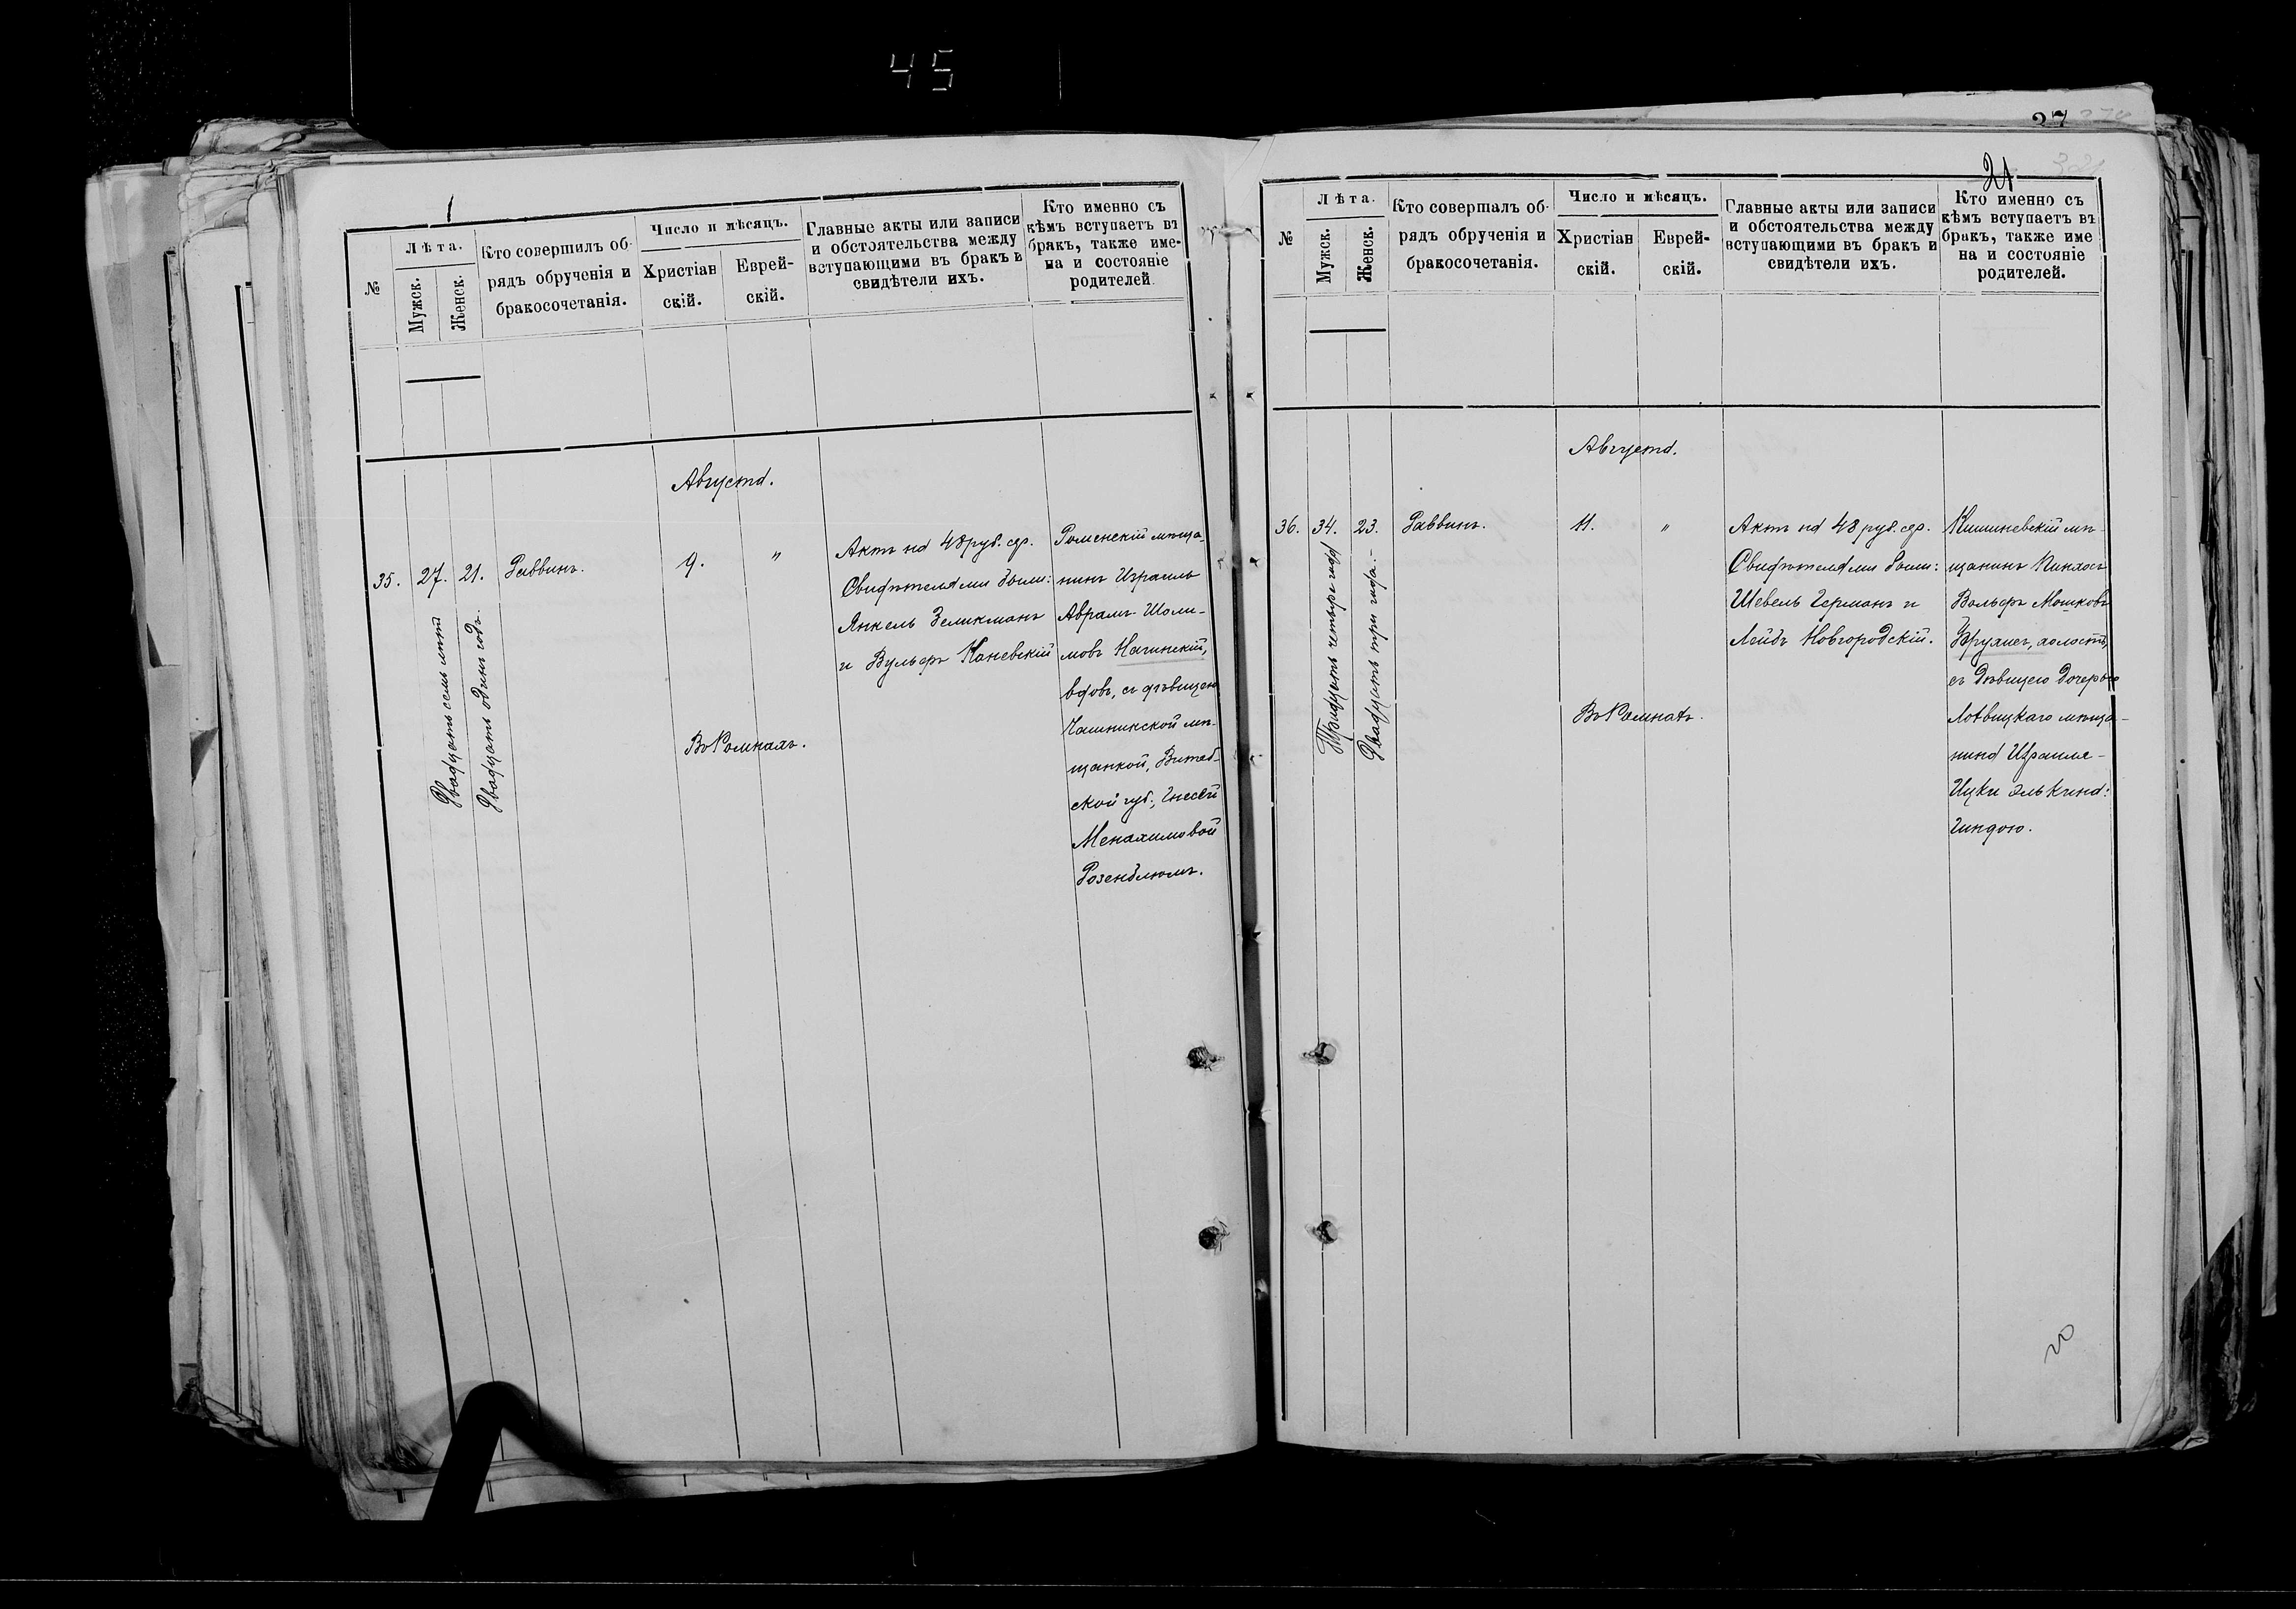 45
№
Лѣта.
Мужск.
Женск.
Кто совершилъ об-
рядъ обрученія и
бракосочетанія.
Число и мѣсяцъ.
Христіан
скій.
Еврей-
скій.
Главные акты или записи
и обстоятельства между
вступающими въ бракъ и
свидѣтели ихъ.
Кто именно съ
кѣмъ вступаетъ въ
бракъ, также име-
на и состояніе
родителей.
Августа.
35.
27.
Двадцать семь лѣтъ
21.
Двадцать одинъ годъ.
Раввинъ.
9.
"
Въ Ромнахъ.
Актъ на 48 руб. сер.
Свидѣтелями были:
Янкель Зеликманъ
и Вульфъ Каневскій
Роменскій мѣща-
нинъ Израиль
Абрамъ Шоли-
мовъ Начинскій,
вдовъ, съ дѣвицею
Чашникской мѣ-
щанкой, Витеб-
ской губ., Гнесей
Менахимовой
Розенблюмъ.
27
21
№
Лѣта.
Мужск.
Женск.
Кто совершалъ об-
рядъ обрученія и
бракосочетанія.
Число и мѣсяцъ.
Христіан
скій.
Еврей-
скій.
Главные акты или записи
и обстоятельства между
вступающими въ бракъ и
свидѣтели ихъ.
Кто именно съ
кѣмъ вступаетъ въ
бракъ, также име
на и состояніе
родителей.
Августа.
36.
34.
Тридцать четыре года
23.
Двадцать три года.-
Раввинъ.
11.
"
Въ Ромнахъ.
Актъ на 48 руб. сер.
Свидѣтелями были:
Шевель Германъ и
Лейбъ Новгородскій.
Кишиневскій мѣ-
щанинъ Пинхосъ
Вольфъ Мошковъ
холостъ,
съ дѣвицею дочерью
Лохвицкаго мѣща-
нина Израиля-
Ицки Элькина:
Гиндою.
20